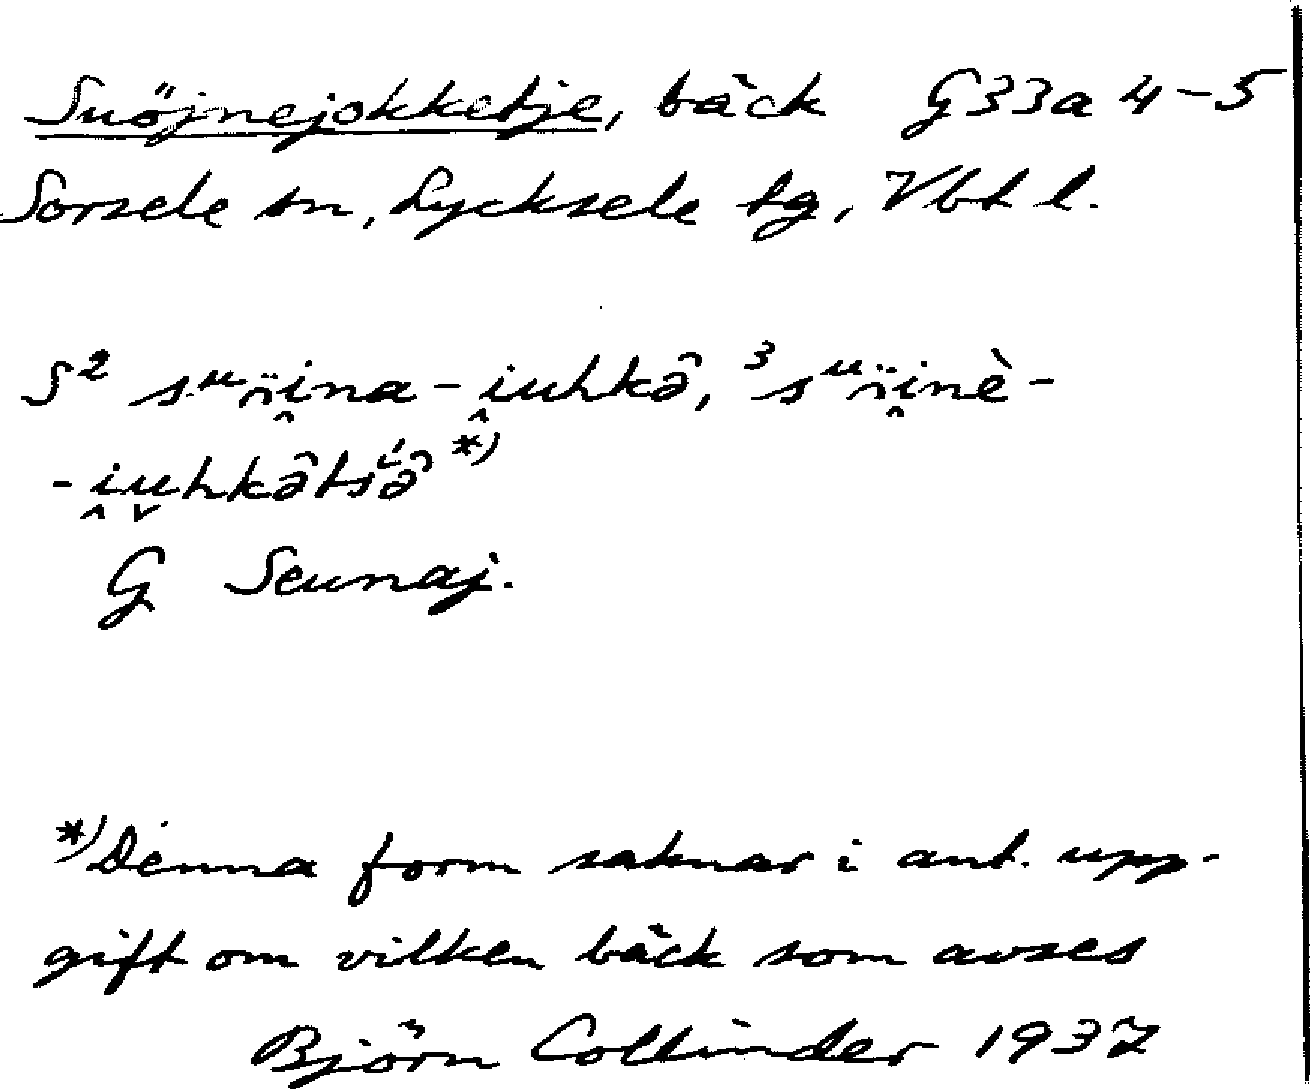 Suöjnejokketje, bäck G33a 4-5
Sorsele sn, Lycksele lg, Vbt l.
S² sᵘöi̭na-i̭uhkə̂, ³sᵘöi̭nè-
-i̭u̬hkə̂tśə̂ *)
G Seunaj.
*) Denna form saknar i ant. upp-
gift om vilken bäck som avses
Björn Collinder 1937